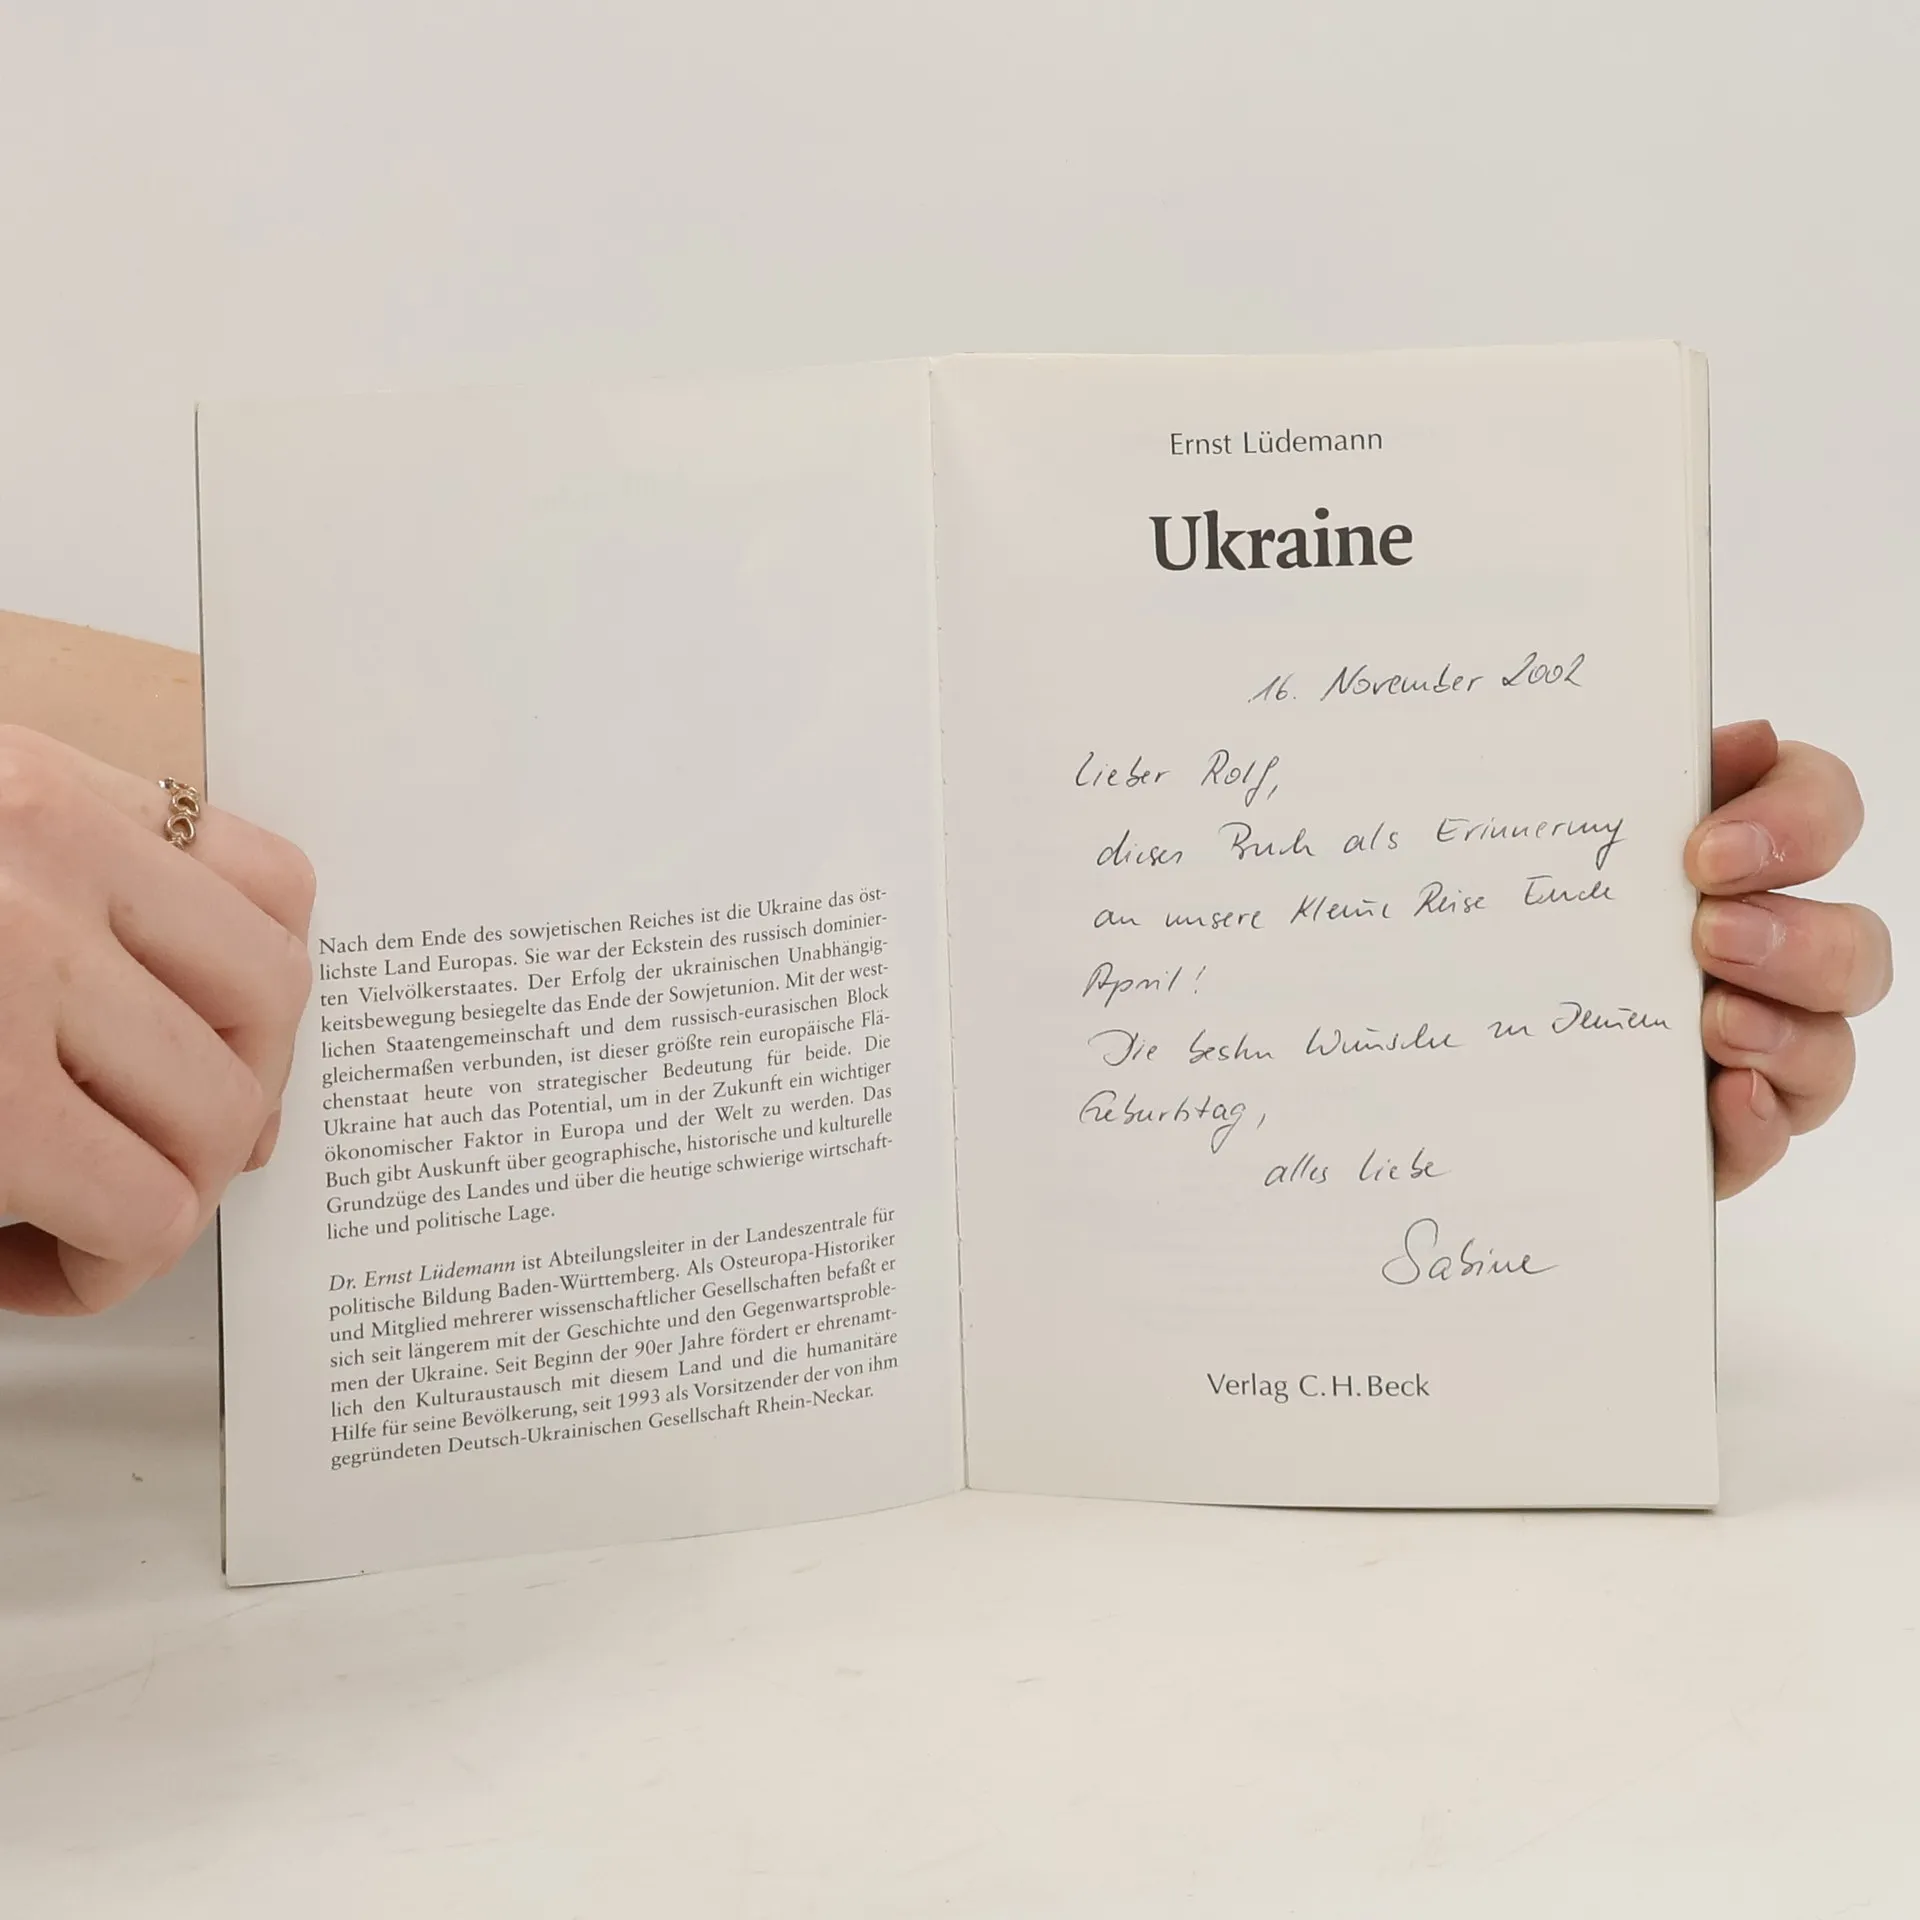 Nach dem Ende des sowjetischen Reiches ist die Ukraine das öst-
lichste Land Europas. Sie war der Eckstein des russisch dominier-
ten Vielvölkerstaates. Der Erfolg der ukrainischen Unabhängig-
keitsbewegung besiegelte das Ende der Sowjetunion. Mit der west-
lichen Staatengemeinschaft und dem russisch-eurasischen Block
gleichermaßen verbunden, ist dieser größte rein europäische Flä-
chenstaat heute von strategischer Bedeutung für beide. Die
Ukraine hat auch das Potential, um in der Zukunft ein wichtiger
ökonomischer Faktor in Europa und der Welt zu werden. Das
Buch gibt Auskunft über geographische, historische und kulturelle
Grundzüge des Landes und über die heutige schwierige wirtschaft-
liche und politische Lage.
Dr. Ernst Lüdemann ist Abteilungsleiter in der Landeszentrale für
politische Bildung Baden-Württemberg. Als Osteuropa-Historiker
und Mitglied mehrerer wissenschaftlicher Gesellschaften befaßt er
sich seit längerem mit der Geschichte und den Gegenwartsproble-
men der Ukraine. Seit Beginn der 90er Jahre fördert er ehrenamt-
lich den Kulturaustausch mit diesem Land und die humanitäre
Hilfe für seine Bevölkerung, seit 1993 als Vorsitzender der von ihm
gegründeten Deutsch-Ukrainischen Gesellschaft Rhein-Neckar.
Ernst Lüdemann
Ukraine
16. November 2002
Lieber Rolf,
dieses Buch als Erinnerung
an unsere kleine Reise Ende
April!
Die besten Wünsche zu Deinem
Geburtstag,
alles Liebe
Sabine
Verlag C.H.Beck